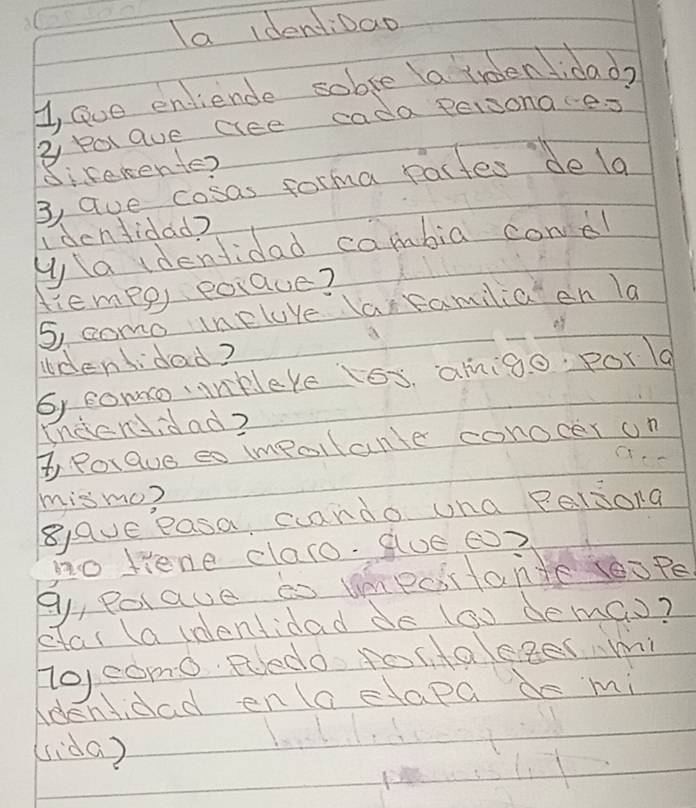 la identidad
1, Que entiende sobre la indentidad?
2, Por que cree cada persona es
diferente?
3, que cosas forma partes de la
identidad?
4, la identidad cambia con el
tiempo, porque?
5, como influye la familia en la
identidad?
6, como infleye los amigo por la
indentidad?
7, Porque es importante conocer un
a..
mismo?
8, que pasa cuando una persona
no tiene claro. que es?
9,, porque es importante respe
ctar la identidad de las demas?
10, como puedo fortalezer mi
identidad en la etapa de mi
vida?